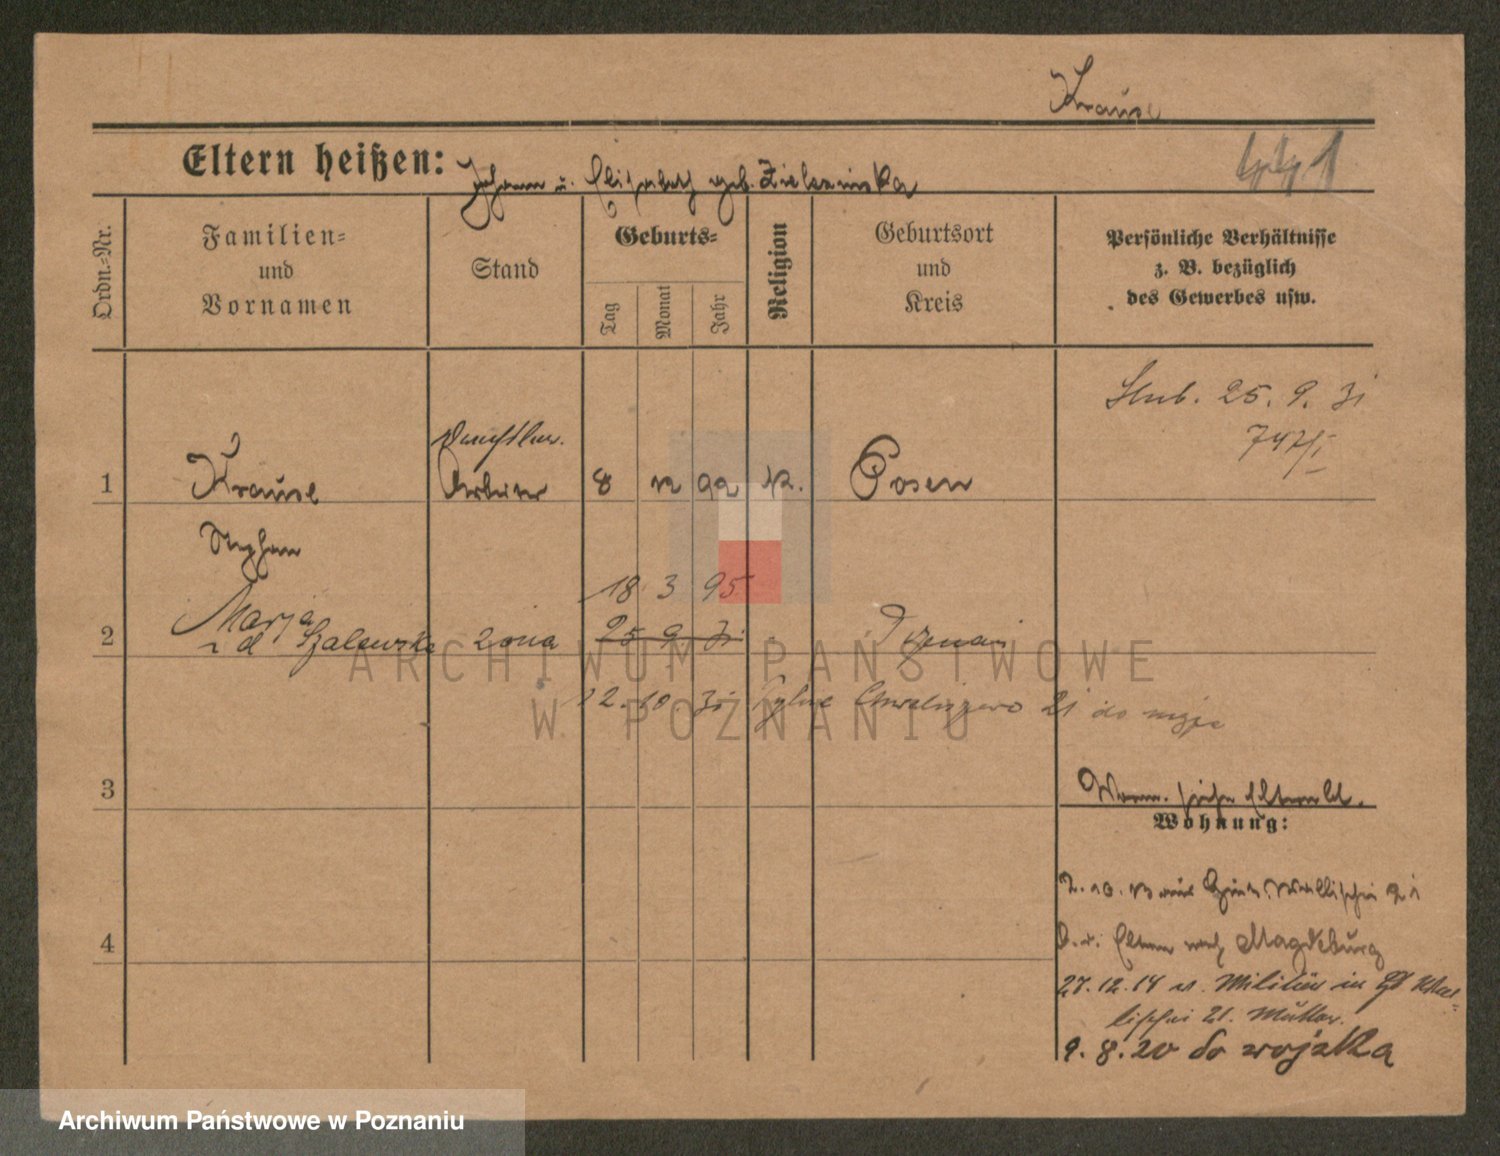 Krause
Eltern heißen: Johann u. Elisabeth geb. Zielezinska
441
Ordn.-Nr.
Familien-
und
Vornamen
Stand
Geburts-
Tag
Monat
Jahr
Religion
Geburtsort
und
Kreis
Persönliche Verhältnisse
z. B. bezüglich
des Gewerbes usw.
25. 9. 31
747/I
1 Krause Arbeiter 8 12 99 k. Posen
Stephan
18 3 95
2 Marja z d Szalewska żona 25 9 31 Poznań
12. 10 31 Chwaliszewo 21 do
3
Wohnung:
2. 10. 13 Wallischei 21
4
Eltern nach Magdeburg
27. 12. 14 v. Militär in Wal-
lischei 21. Mutter.
9. 8. 20 do wojska
ARCHIWUM PAŃSTWOWE
W POZNANIU
Archiwum Państwowe w Poznaniu